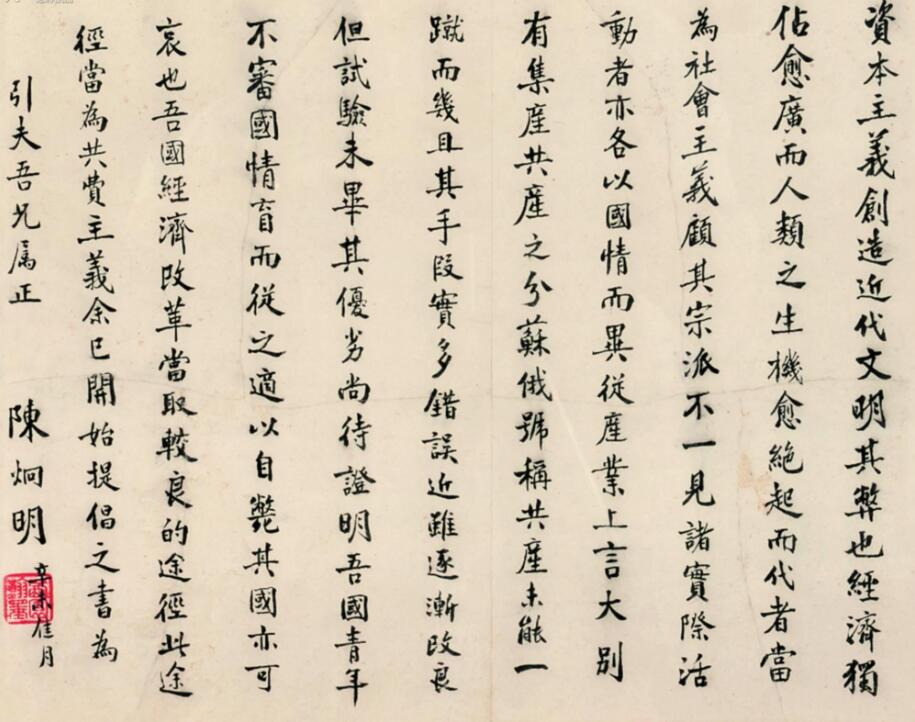 資本主義創造近代文明其弊也經濟獨
佔愈廣而人類之生機愈絕起而代者當
為社會主義顧其宗派不一見諸實際活
動者亦各以國情而異從產業上言大別
有集產共產之分蘇俄號稱共產未能一
蹴而幾且其手段實多錯誤近雖逐漸改良
但試驗未畢其優劣尚待證明吾國青年
不審國情盲而從之適以自斃其國亦可
哀也吾國經濟改革當取較良的途徑此途
徑當為共費主義余已開始提倡之書為
引夫吾兄属正
陳炯明
辛未佳月